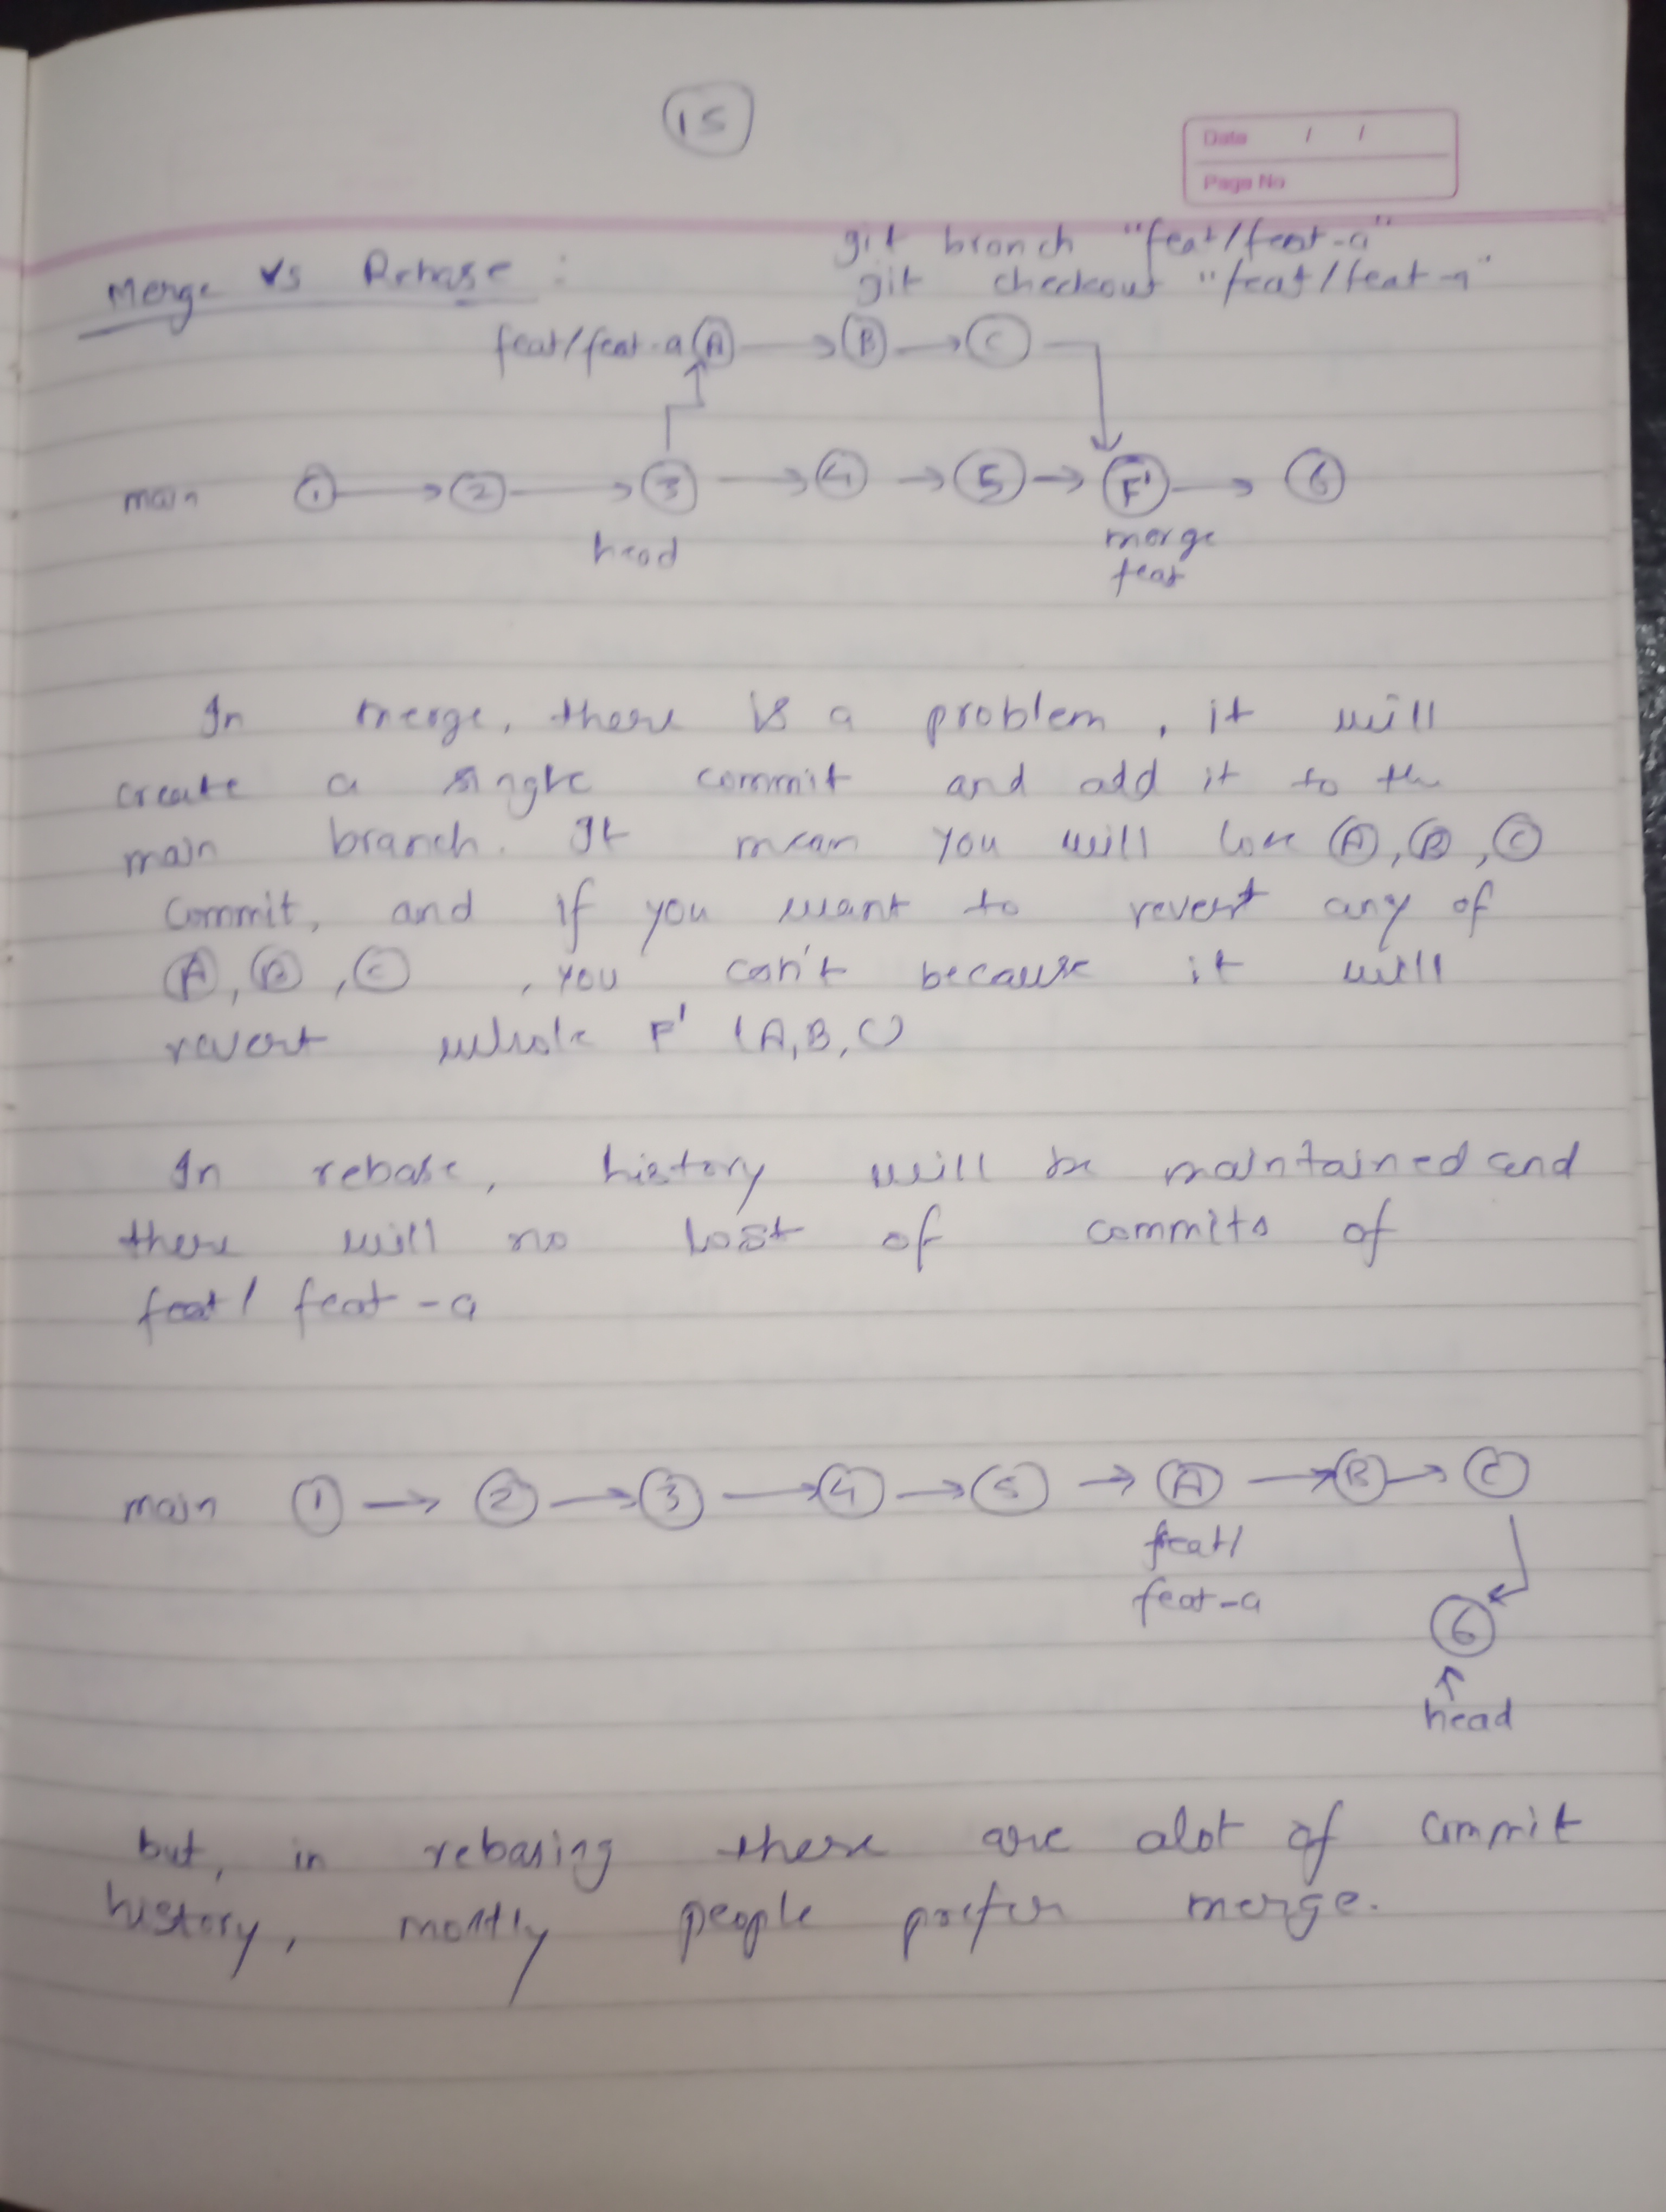 15
Data / /
Page No
git branch "feat/feat-a"
Merge Vs Rebase :
git checkout "feat/feat-a"
feat/feat-a A B C
main 1 2 3 4 5 F' 6
head
merge
feat
In merge, there is a problem, it will
create a single commit and add it to the
main branch. It mean you will lose A, B, C
commit, and if you want to revert any of
A, B, C , you can't because it will
revert whole F' (A,B,C)
In rebase, history will be maintained and
there will no lost of commits of
feat/ feat-a
main 1 2 3 4 5 A B C
feat/
feat-a
6
head
but, in rebasing there are alot of commit
history, mostly people prefer merge.